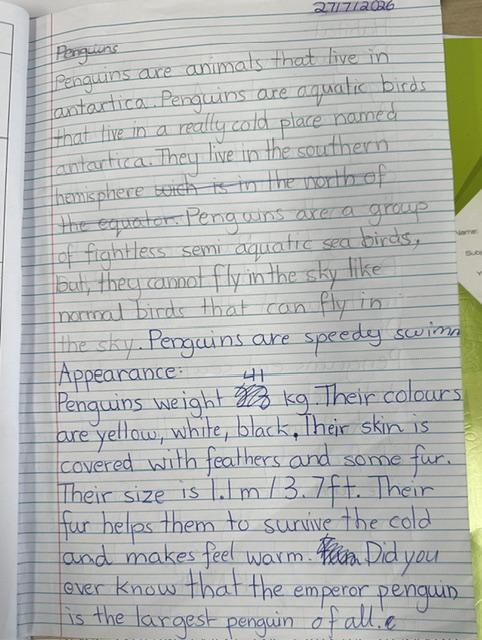 27/7/2026
Penguins
Penguins are animals that live in
antartica. Penguins are aquatic birds
that live in a really cold place named
antartica. They live in the southern
hemisphere wich is in the north of
the equator. Penguins are a group
of fightless semi aquatic sea birds,
but, they cannot fly in the sky like
normal birds that can fly in
the sky. Penguins are speedy swimm
Appearance:
41
Penguins weight kg. Their colours
are yellow, white, black, Their skin is
covered with feathers and some fur.
Their size is 1.1m/3.7ft. Their
fur helps them to survive the cold
and makes feel warm. Did you
ever know that the emperor penguin
is the largest penguin of all.
Name: